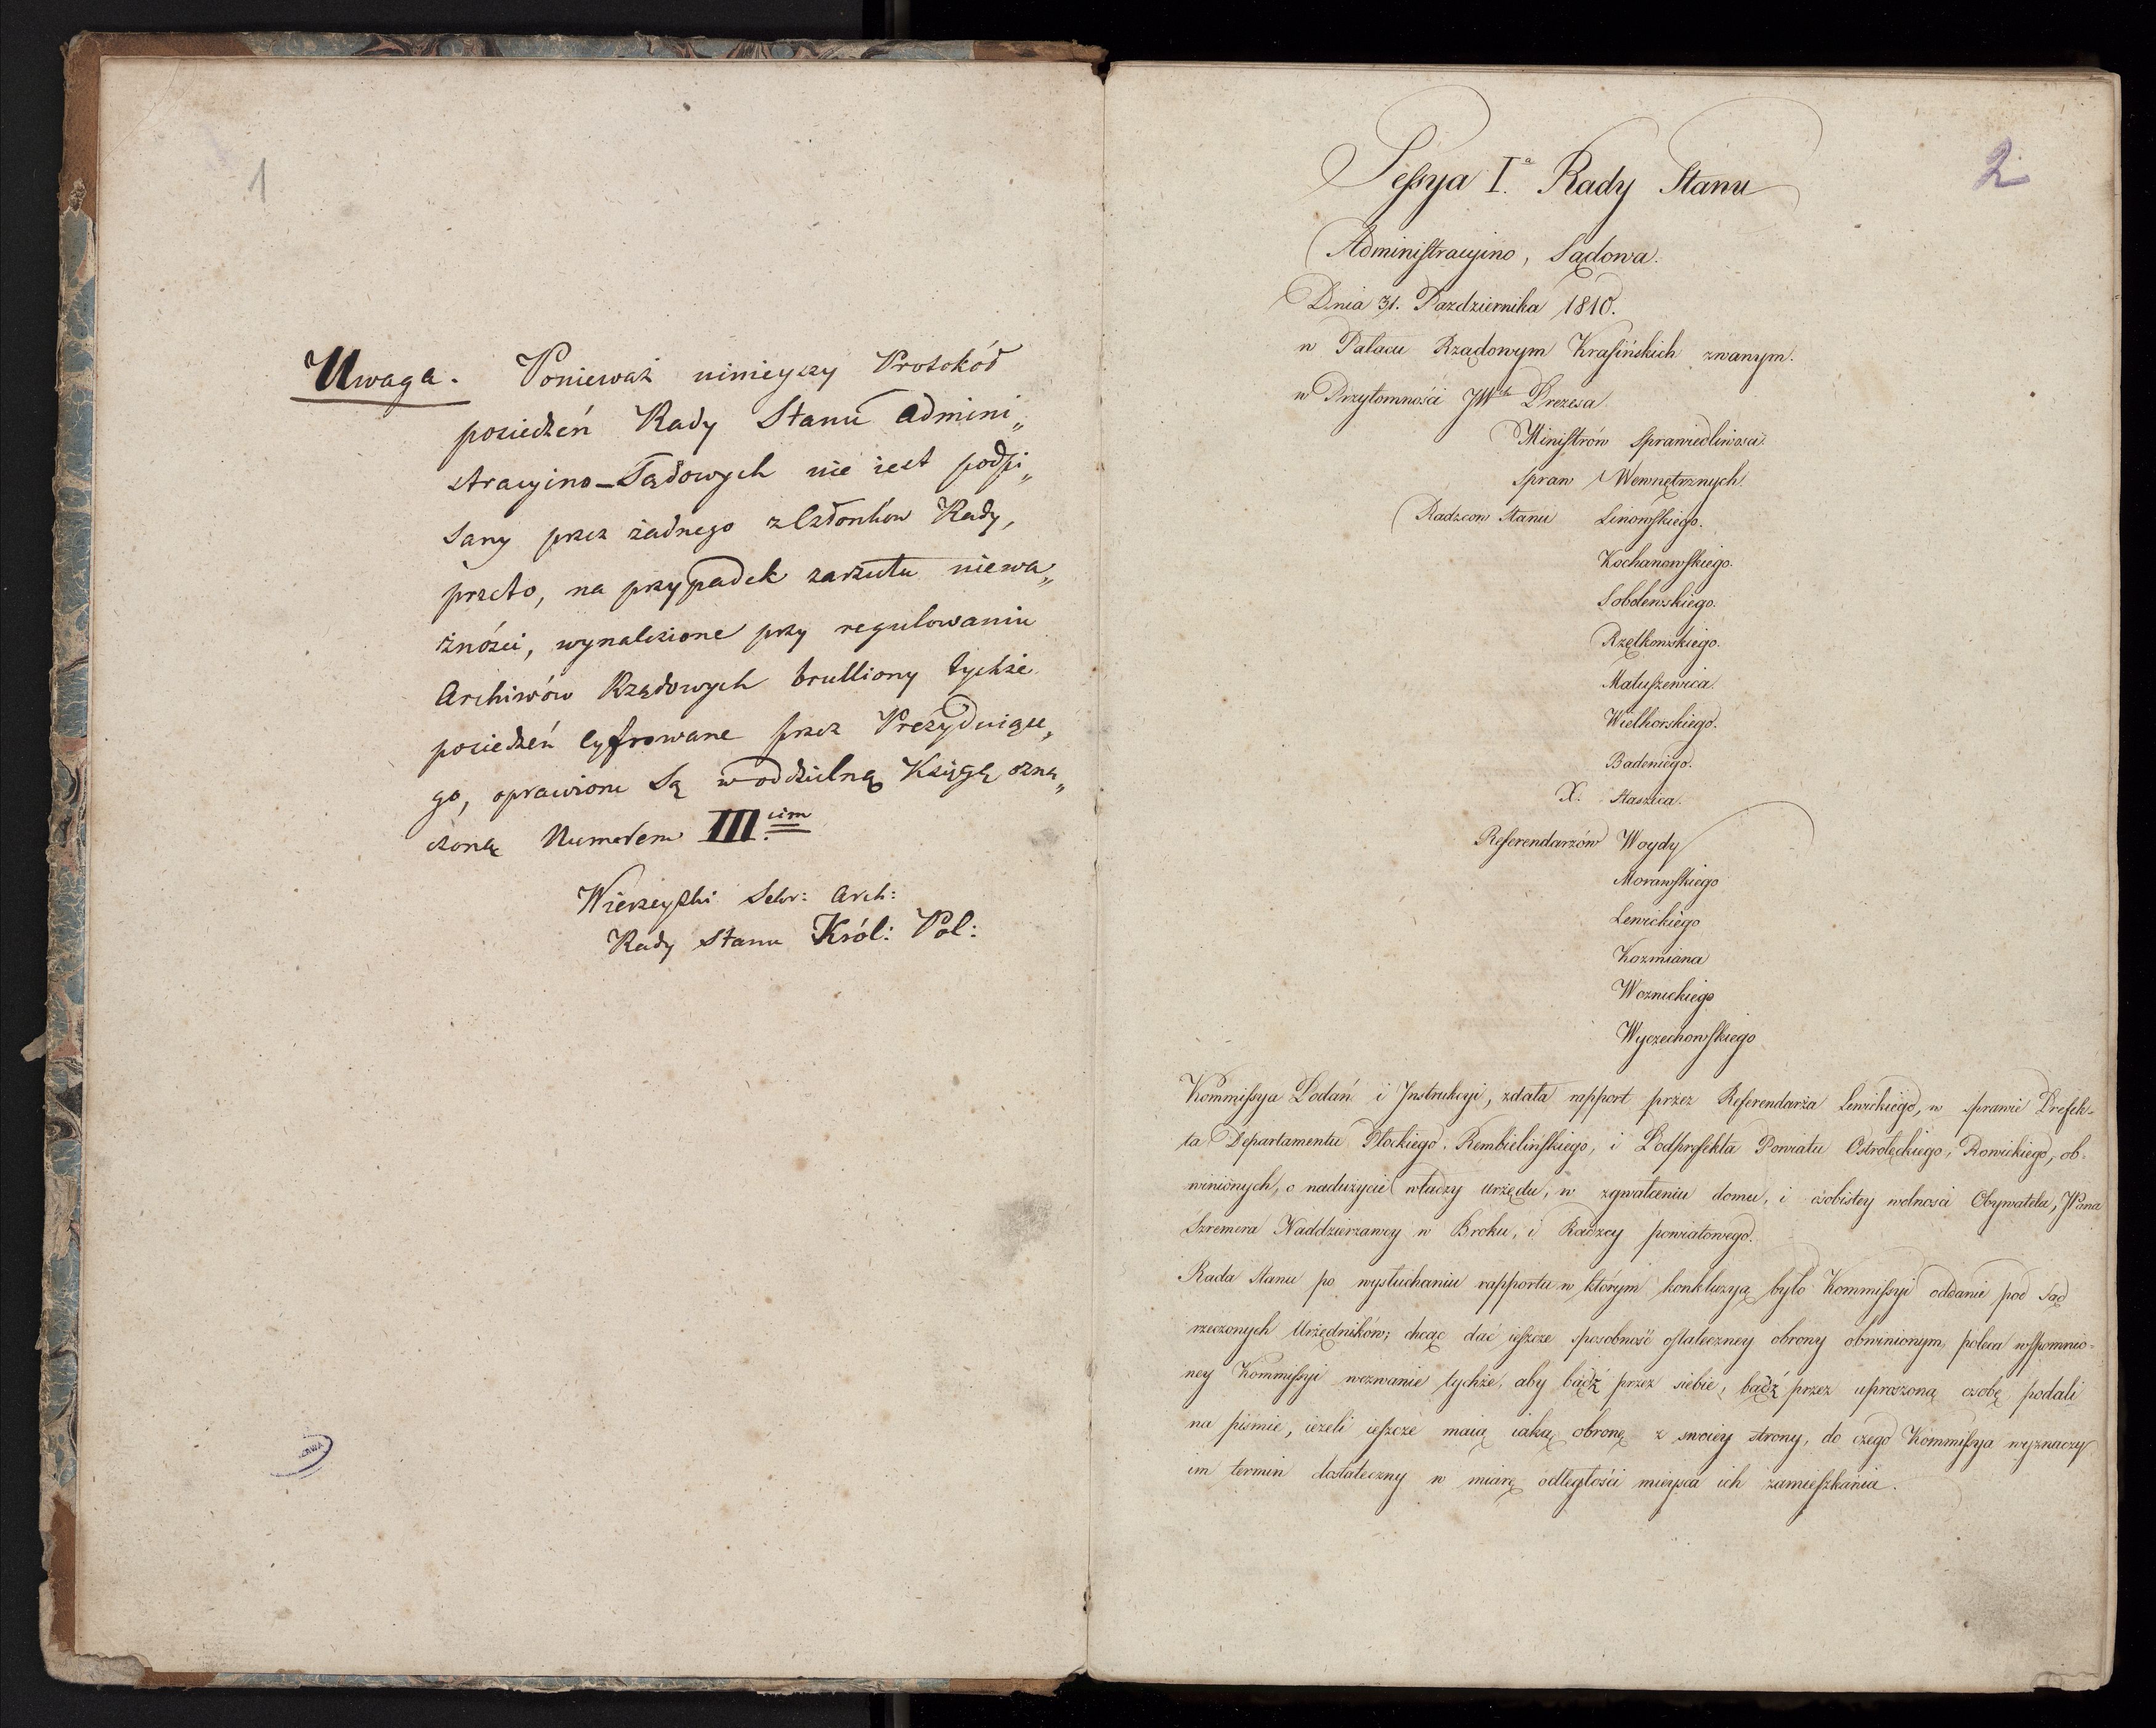 1
Uwaga. Ponieważ ninieyszy Protokół
posiedzeń Rady Stanu Admini„
stracyino-Sądowych nie iest podpi„
sany przez żadnego z Członków Rady,
przeto, na przypadek zarzutu niewa„
żności, wynalezione przy regulowaniu
Archiwów Rządowych brulliony tychże
posiedzeń cyfrowane przez Prezyduiące„
go, oprawione są w oddzielną Księgę ozna„
czoną Numerem III.cim
Sekr: Arch:
Rady Stanu Król: Pol:
2
Sessya I.a Rady Stanu
Administracyino, Sądowa.
Dnia 31. Pazdziernika 1810.
w Pałacu Rządowym Krasińskich zwanym.
w Przytomności JW Prezesa
Ministrów Sprawiedliwości.
Spraw Wewnętrznych.
Radzcow Stanu Linowskiego.
Kochanowskiego.
Sobolewskiego.
Rzętkowskiego.
Matuszewica.
Wielhorskiego.
Badeniego.
X. Staszica.
Referendarzów Woydy
Morawskiego
Lewickiego
Kozmiana
Woznickiego
Wyczechowskiego
Kommissya Podań i Instrukcyi, zdała rapport przez Referendarza Lewickiego, w sprawie Prefek-
ta Departamentu Płockiego, Rembielińskiego, i Podprefekta Powiatu Ostrołęckiego, Rowickiego, ob-
winionych, o nadużycie władzy urzędu, w zgwałceniu domu, i osobistey wolności Obywatela, JPana
Szremera Naddzierzawcy w Broku, i Radzcy powiatowego.
Rada Stanu po wysłuchaniu rapportu w którym konkluzyą było Kommissyi oddanie pod Sąd
rzeczonych Urzędników; chcąc dać ieszcze sposobność ostateczney obrony obwinionym, poleca wspomnio-
ney Kommissyi wezwanie tychże, aby bądź przez siebie, bądź przez uproszoną osobę podali
na pismie, ieżeli ieszcze maią iaką obronę z swoiey strony, do czego Kommissya wyznaczy
im termin dostateczny w miarę odległości mieysca ich zamieszkania.